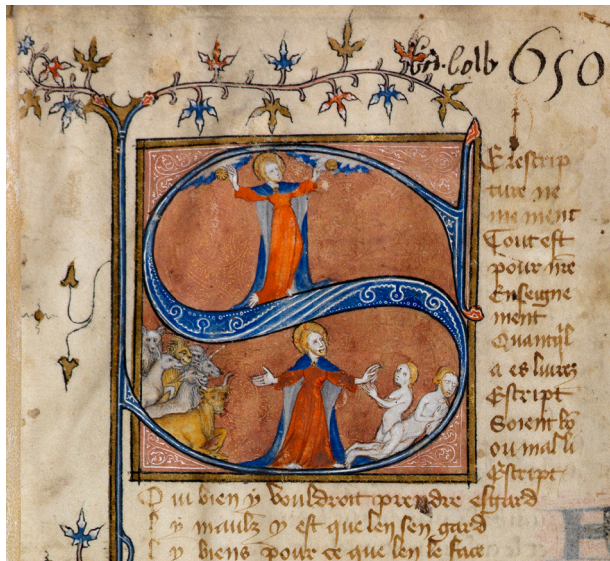 bib. Colb 650
Se lescrip
ture ne
me ment
Tout est
pour nre
Enseigne
ment
Quantql
a es livres
Escript
Soient bo
ou mal li
Escript
Qui bien y vouldroit prendre esgard
l y maulx y est que len sen gard
l y biens pour ce que len le face